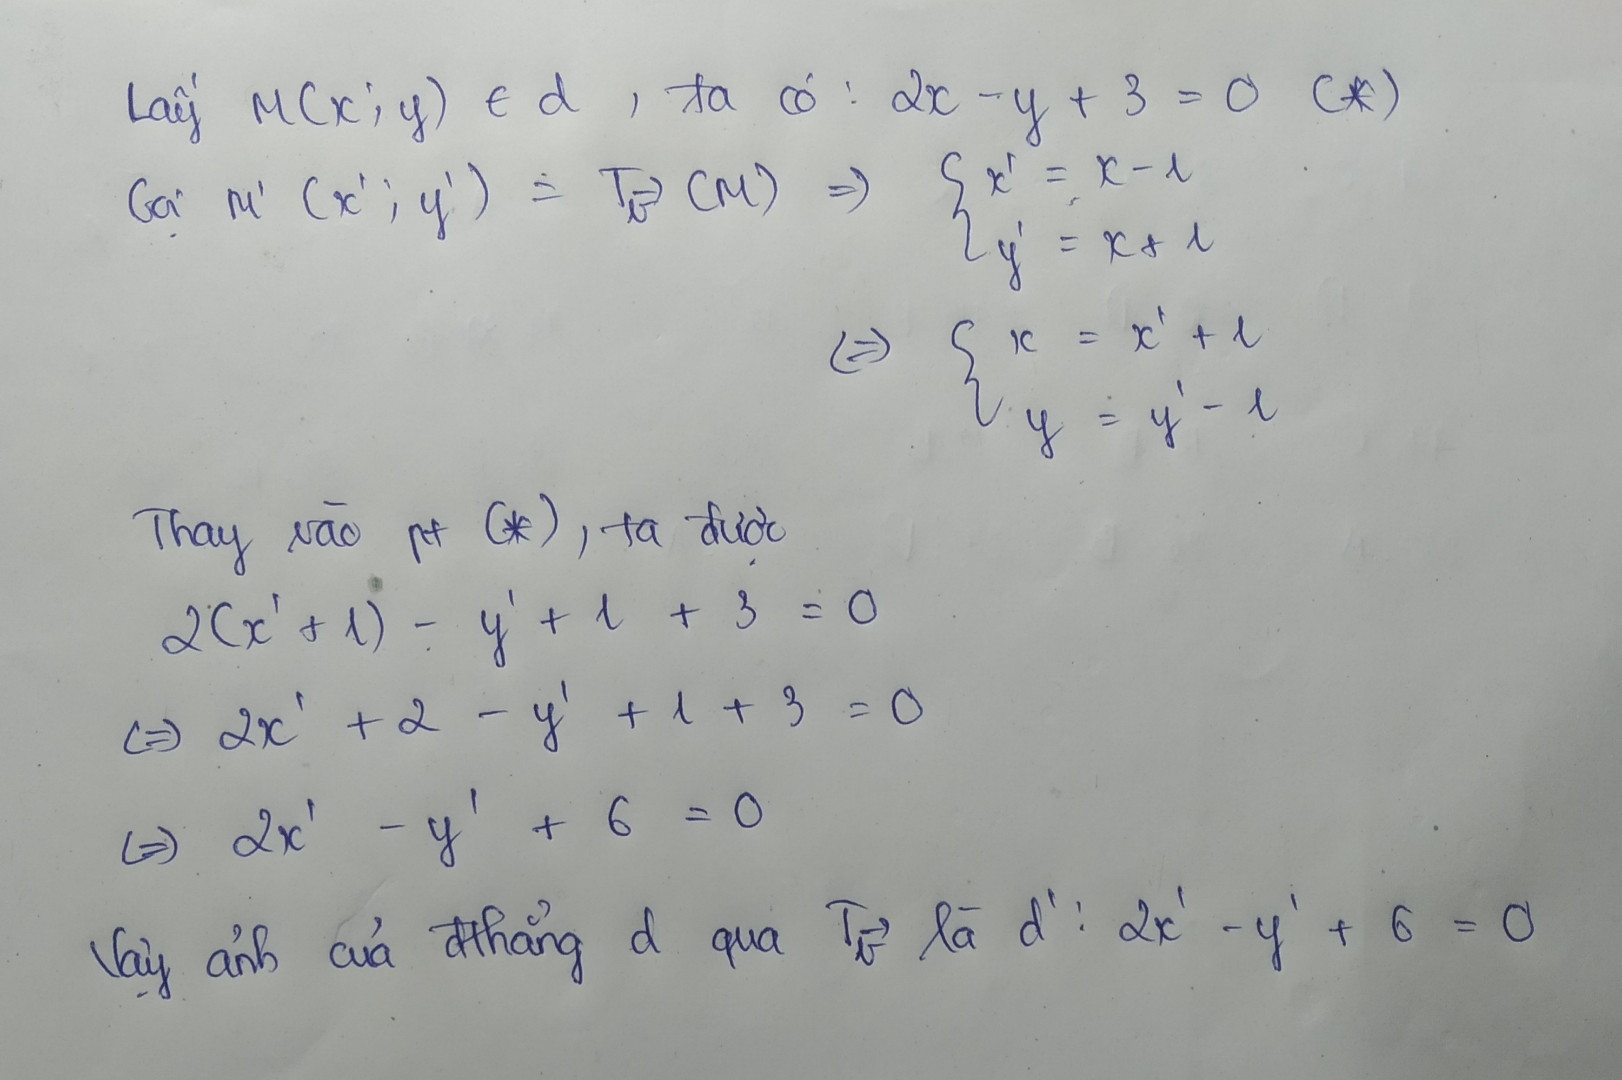 Lấy M(x; y) ∈ d, ta có: 2x - y + 3 = 0 (*)
Gọi M' (x'; y') = T_v⃗ (M) => { x' = x - 1
y' = x + 1
<=> { x = x' + 1
y = y' - 1
Thay vào pt (*), ta được
2(x' + 1) - y' + 1 + 3 = 0
<=> 2x' + 2 - y' + 1 + 3 = 0
<=> 2x' - y' + 6 = 0
Vậy ảnh của đthẳng d qua T_v⃗ là d': 2x' - y' + 6 = 0